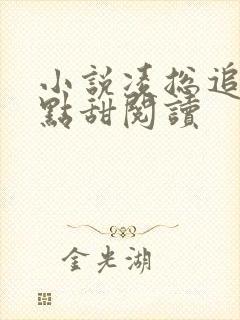 小說凌總追
點甜閱讀
金光湖